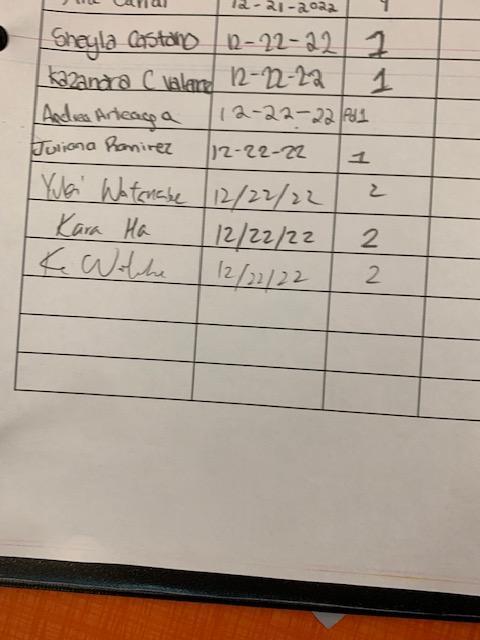 12-21-2022
Sheyla Castano 12-22-22 1
Kazandra C 12-22-22 1
Andrea Arteaga 12-22-22 Pd1
Juliana Ramirez 12-22-22 1
Watanabe 12/22/22 2
Kara Ha 12/22/22 2
12/22/22 2